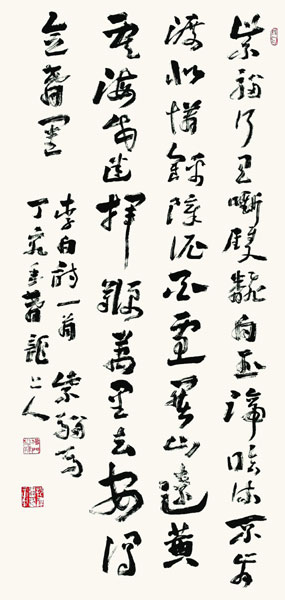 紫騮行且嘶雙翻白玉蹄臨流不肯
渡似惜錦障泥白雪關山遠黃
雲海戍迷揮鞭萬里去安得
念春閨
李白詩一首 紫騮馬
丁亥年春龍上人